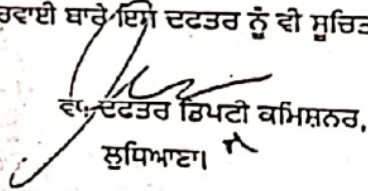 ਰਵਾਈ ਬਾਰੇ ਇਸ ਦਫਤਰ ਨੂੰ ਵੀ ਸੂਚਿਤ
ਵਾ: ਦਫਤਰ ਡਿਪਟੀ ਕਮਿਸ਼ਨਰ,
ਲੁਧਿਆਣਾ।